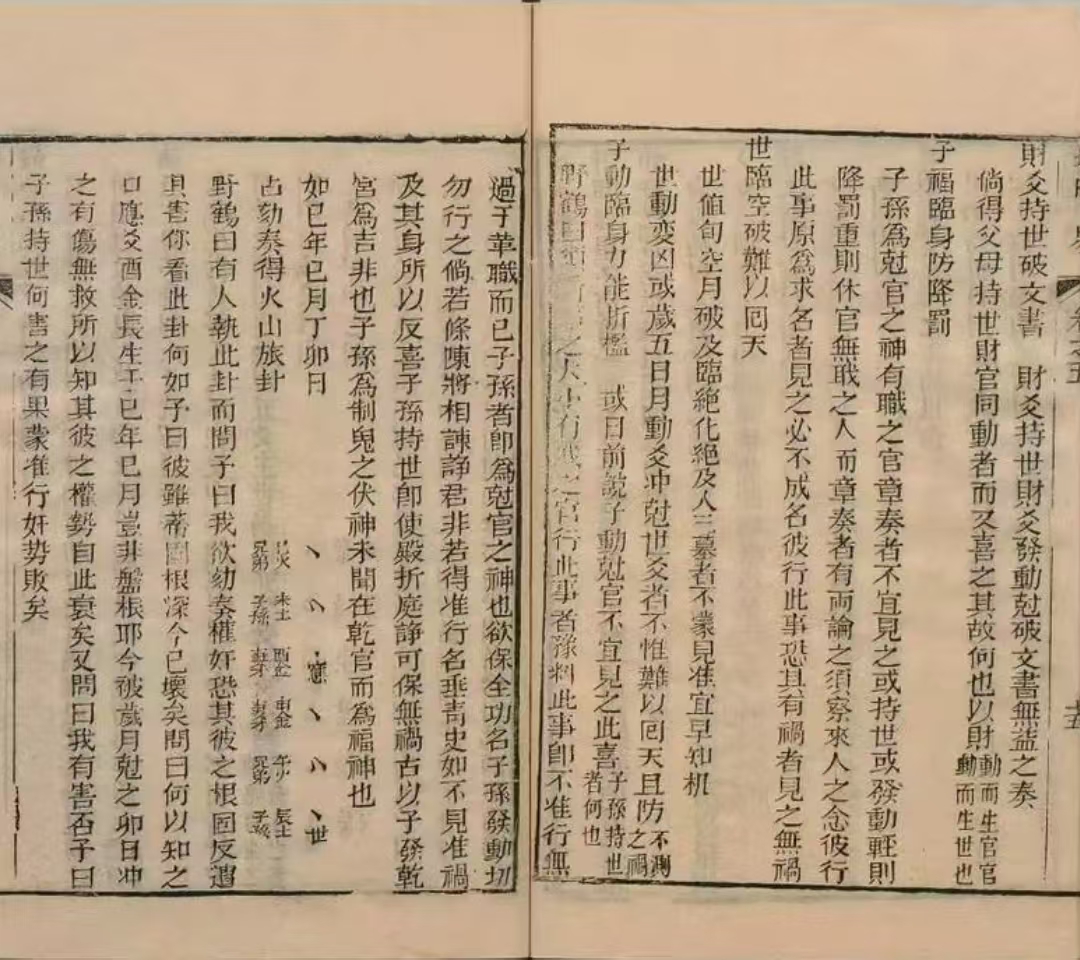 卷之五
財爻持世破文書　財爻持世財爻發動尅破文書無益之奏
倘得父母持世財官同動者而又喜之其故何也以財動而生官官動而生世也
子福臨身防降罰
子孫爲尅官之神有職之官章奏者不宜見之或持世或發動輕則
降罰重則休官無職之人而章奏者有両論之須察來人之念彼行
此事原爲求名者見之必不成名彼行此事恐其有禍者見之無禍
世臨空破難以囘天
世値旬空月破及臨絕化絕及人三墓者不蒙見准宜早知机
世動変凶或歲五日月動爻冲尅世爻者不惟難以囘天且防不測之禍
子動臨身力能折檻　或曰前説子動尅官不宜見之此喜子孫持世者何也
野鶴曰 之大小有 之官行此事者豫料此事卽不准行無
過于革職而已子孫者卽爲尅官之神也欲保全功名子孫發動切
勿行之倘若條陳將相諫諍君非若得准行名垂靑史如不見准禍
及其身所以反喜子孫持世卽使殿折庭諍可保無禍古以子發乾
宮爲吉非也子孫爲制鬼之伏神未聞在乾官而爲福神也
如巳年巳月丁卯日
占劾奏得火山旅卦
世
巳火 未土 酉金 申金 午火 辰土
兄弟 子孫 妻才 妻才 兄弟 子孫
野鶴曰有人執此卦而問予曰我欲劾奏權奸恐其彼之根固反遭
其害你看此卦何如予曰彼雖蒂固根深今已壞矣問曰何以知之
曰應爻酉金長生于巳年巳月豈非盤根耶今被歲月尅之卯日冲
之有傷無救所以知其彼之權勢自此衰矣又問曰我有害否予曰
子孫持世何害之有果蒙准行奸势敗矣